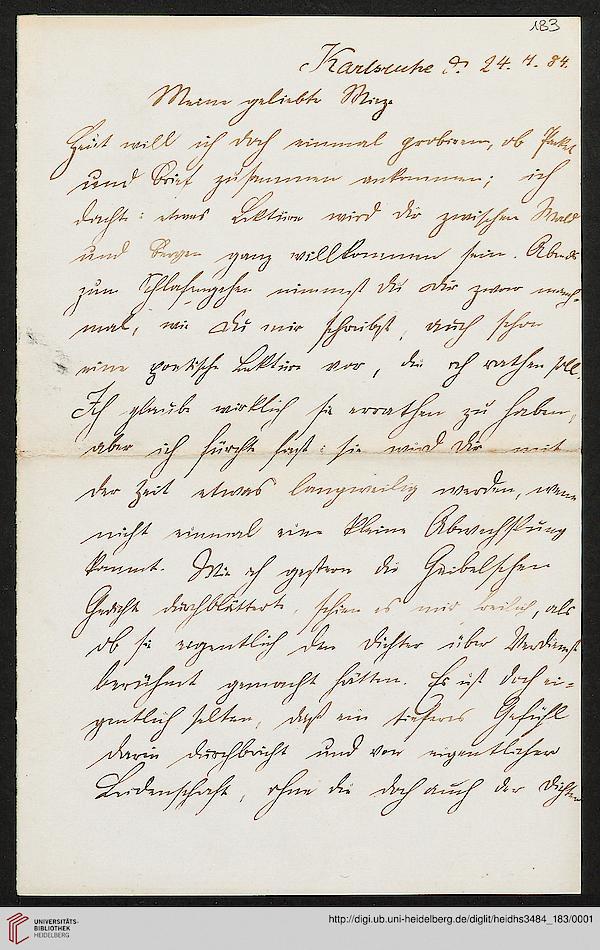 183
Karlsruhe d. 24. 4. 84.
Meine geliebte Mieze
Heut will ich doch einmal probieren, ob Packet
und Brief zusammen ankommen; ich
dachte: etwas Lektüre wird dir zwischen Wald
und Bergen ganz willkommen sein. Abends
zum Schlafengehen nimmst du dir zwar manch-
mal, wie du mir schreibst, auch schon
eine poetische Lektüre vor, die ich rathen soll.
Ich glaube wirklich sie errathen zu haben,
aber ich fürchte fast: sie wird dir mit
der Zeit etwas langweilig werden, wenn
nicht einmal eine kleine Abwechslung
kommt. Wie ich gestern die Geibelschen
Gedicht durchblätterte, schien es mir freilich, als
ob sie eigentlich den Dichter über Verdienst
berühmt gemacht hätten. Es ist doch ei-
gentlich selten, daß ein tieferes Gefühl
darin durchbricht und von eigentlicher
Leidenschaft, ohne die doch auch der Dichter
UNIVERSITÄTS-
BIBLIOTHEK
HEIDELBERG
http://digi.ub.uni-heidelberg.de/diglit/heidhs3484_183/0001